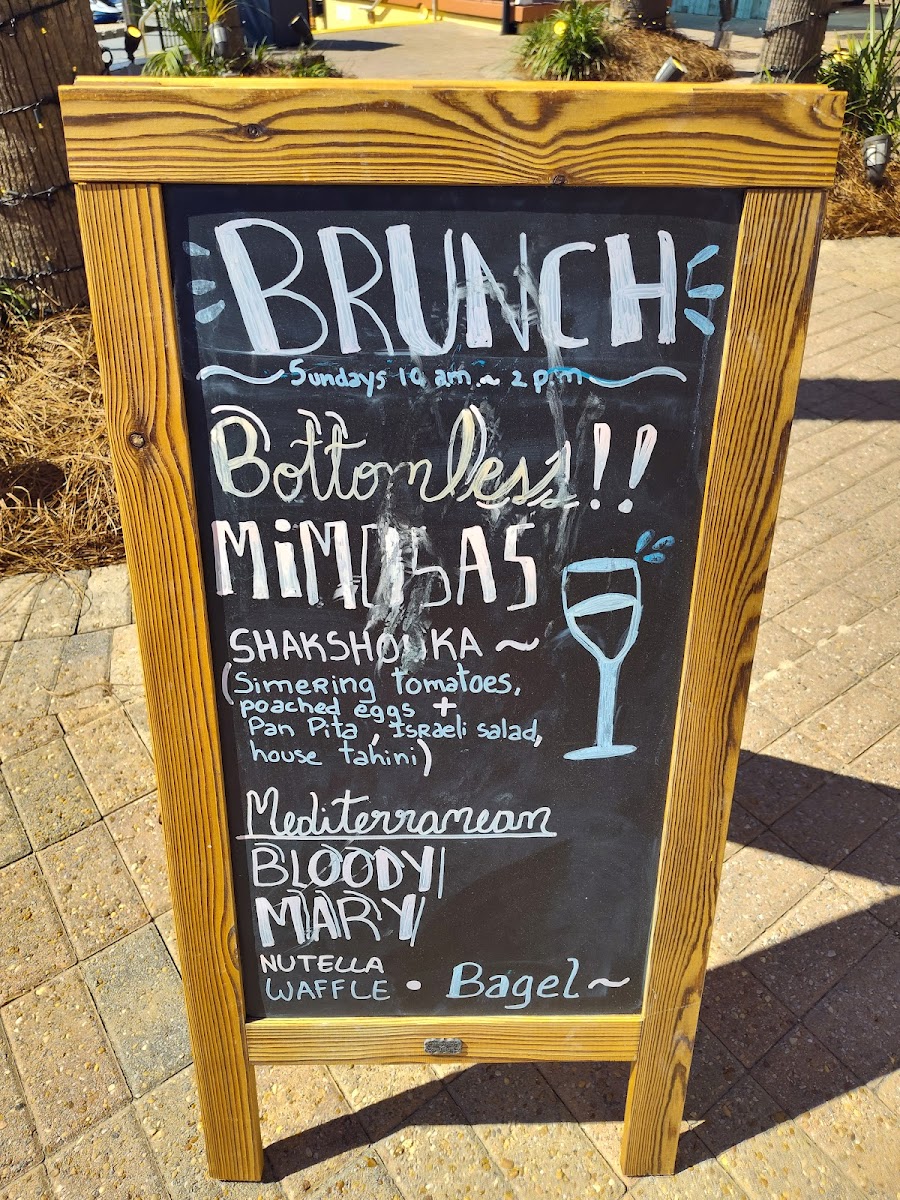 BRUNCH
Sundays 10 am ~ 2 pm
Bottomless!!
MiMOSAS
SHAKSHOUKA ~
(Simering tomatoes,
poached eggs +
Pan Pita, Israeli salad,
house tahini)
Mediterranean
BLOODY
MARY
NUTELLA
WAFFLE • Bagel ~